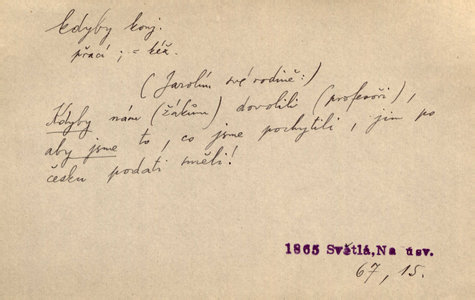 kdyby konj.
přací ; = kéž.
(Jarolím své rodině:)
Kdyby nám (žákům) dovolili (profesoři),
aby jsme to, co jsme pochytili, jim po
česku podati směli!
1865 Světlá, Na úsv.
67, 15.